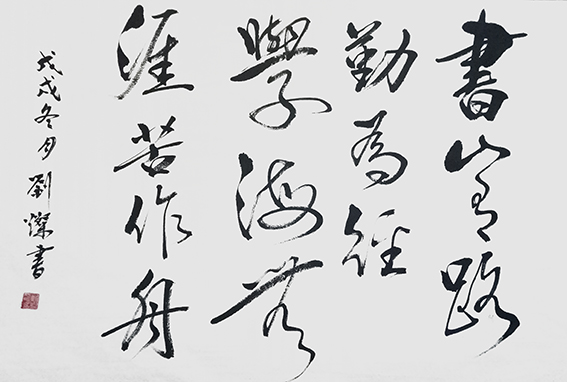 書山有路
勤為徑
學海無
涯苦作舟
戊戌冬月劉燦書